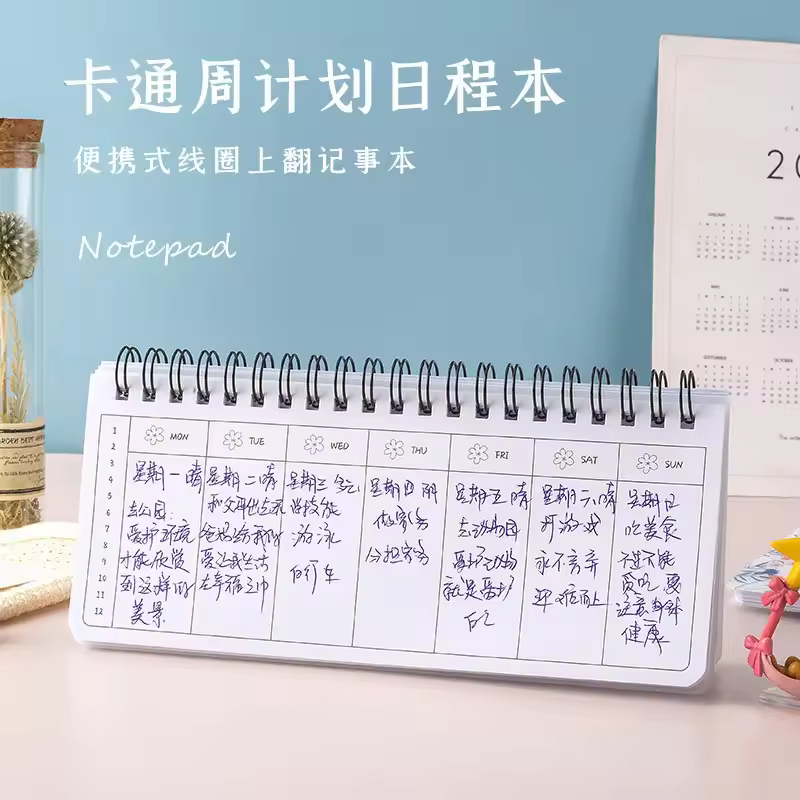 卡通周计划日程本
便携式线圈上翻记事本
Notepad
20
JANUARY
MAY
JUNE
SEPTEMBER
OCTOBER
1
2
3
4
5
6
7
8
9
10
11
12
MON
TUE
WED
THU
FRI
SAT
SUN
星期一晴
去公园:
爱护环境
才能欣赏
到这样的
美景
星期二晴
和父母出去玩
爱让我生活
在幸福之中
星期三
学技能
游泳
自行车
星期四 阴
做家务
分担家务
星期五晴
去动物园
爱护动物
就是爱护
自己
星期六晴
开游戏
永不言弃
迎难而上
星期日
吃美食
不过不能
贪吃 要
注意身体
健康